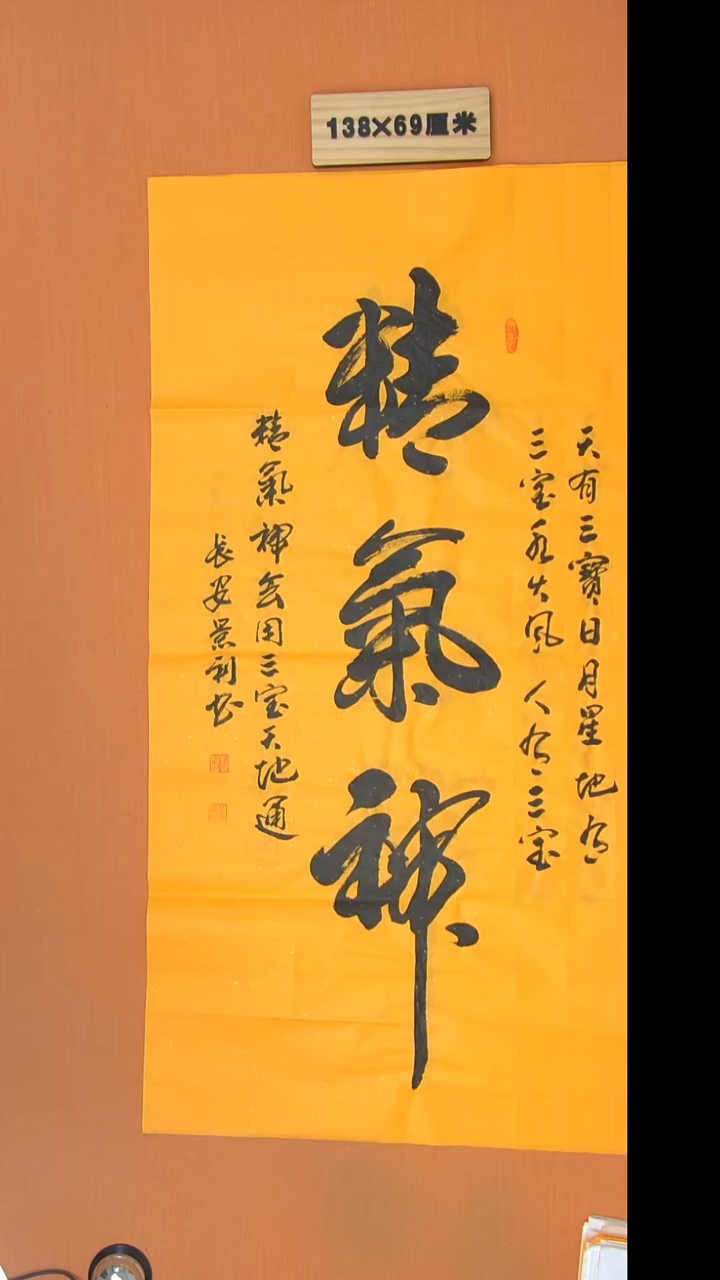 138×69厘米
天有三寶日月星地有
三宝水火风人有三宝
精氣神
精氣神会用三宝天地通
长安景利书